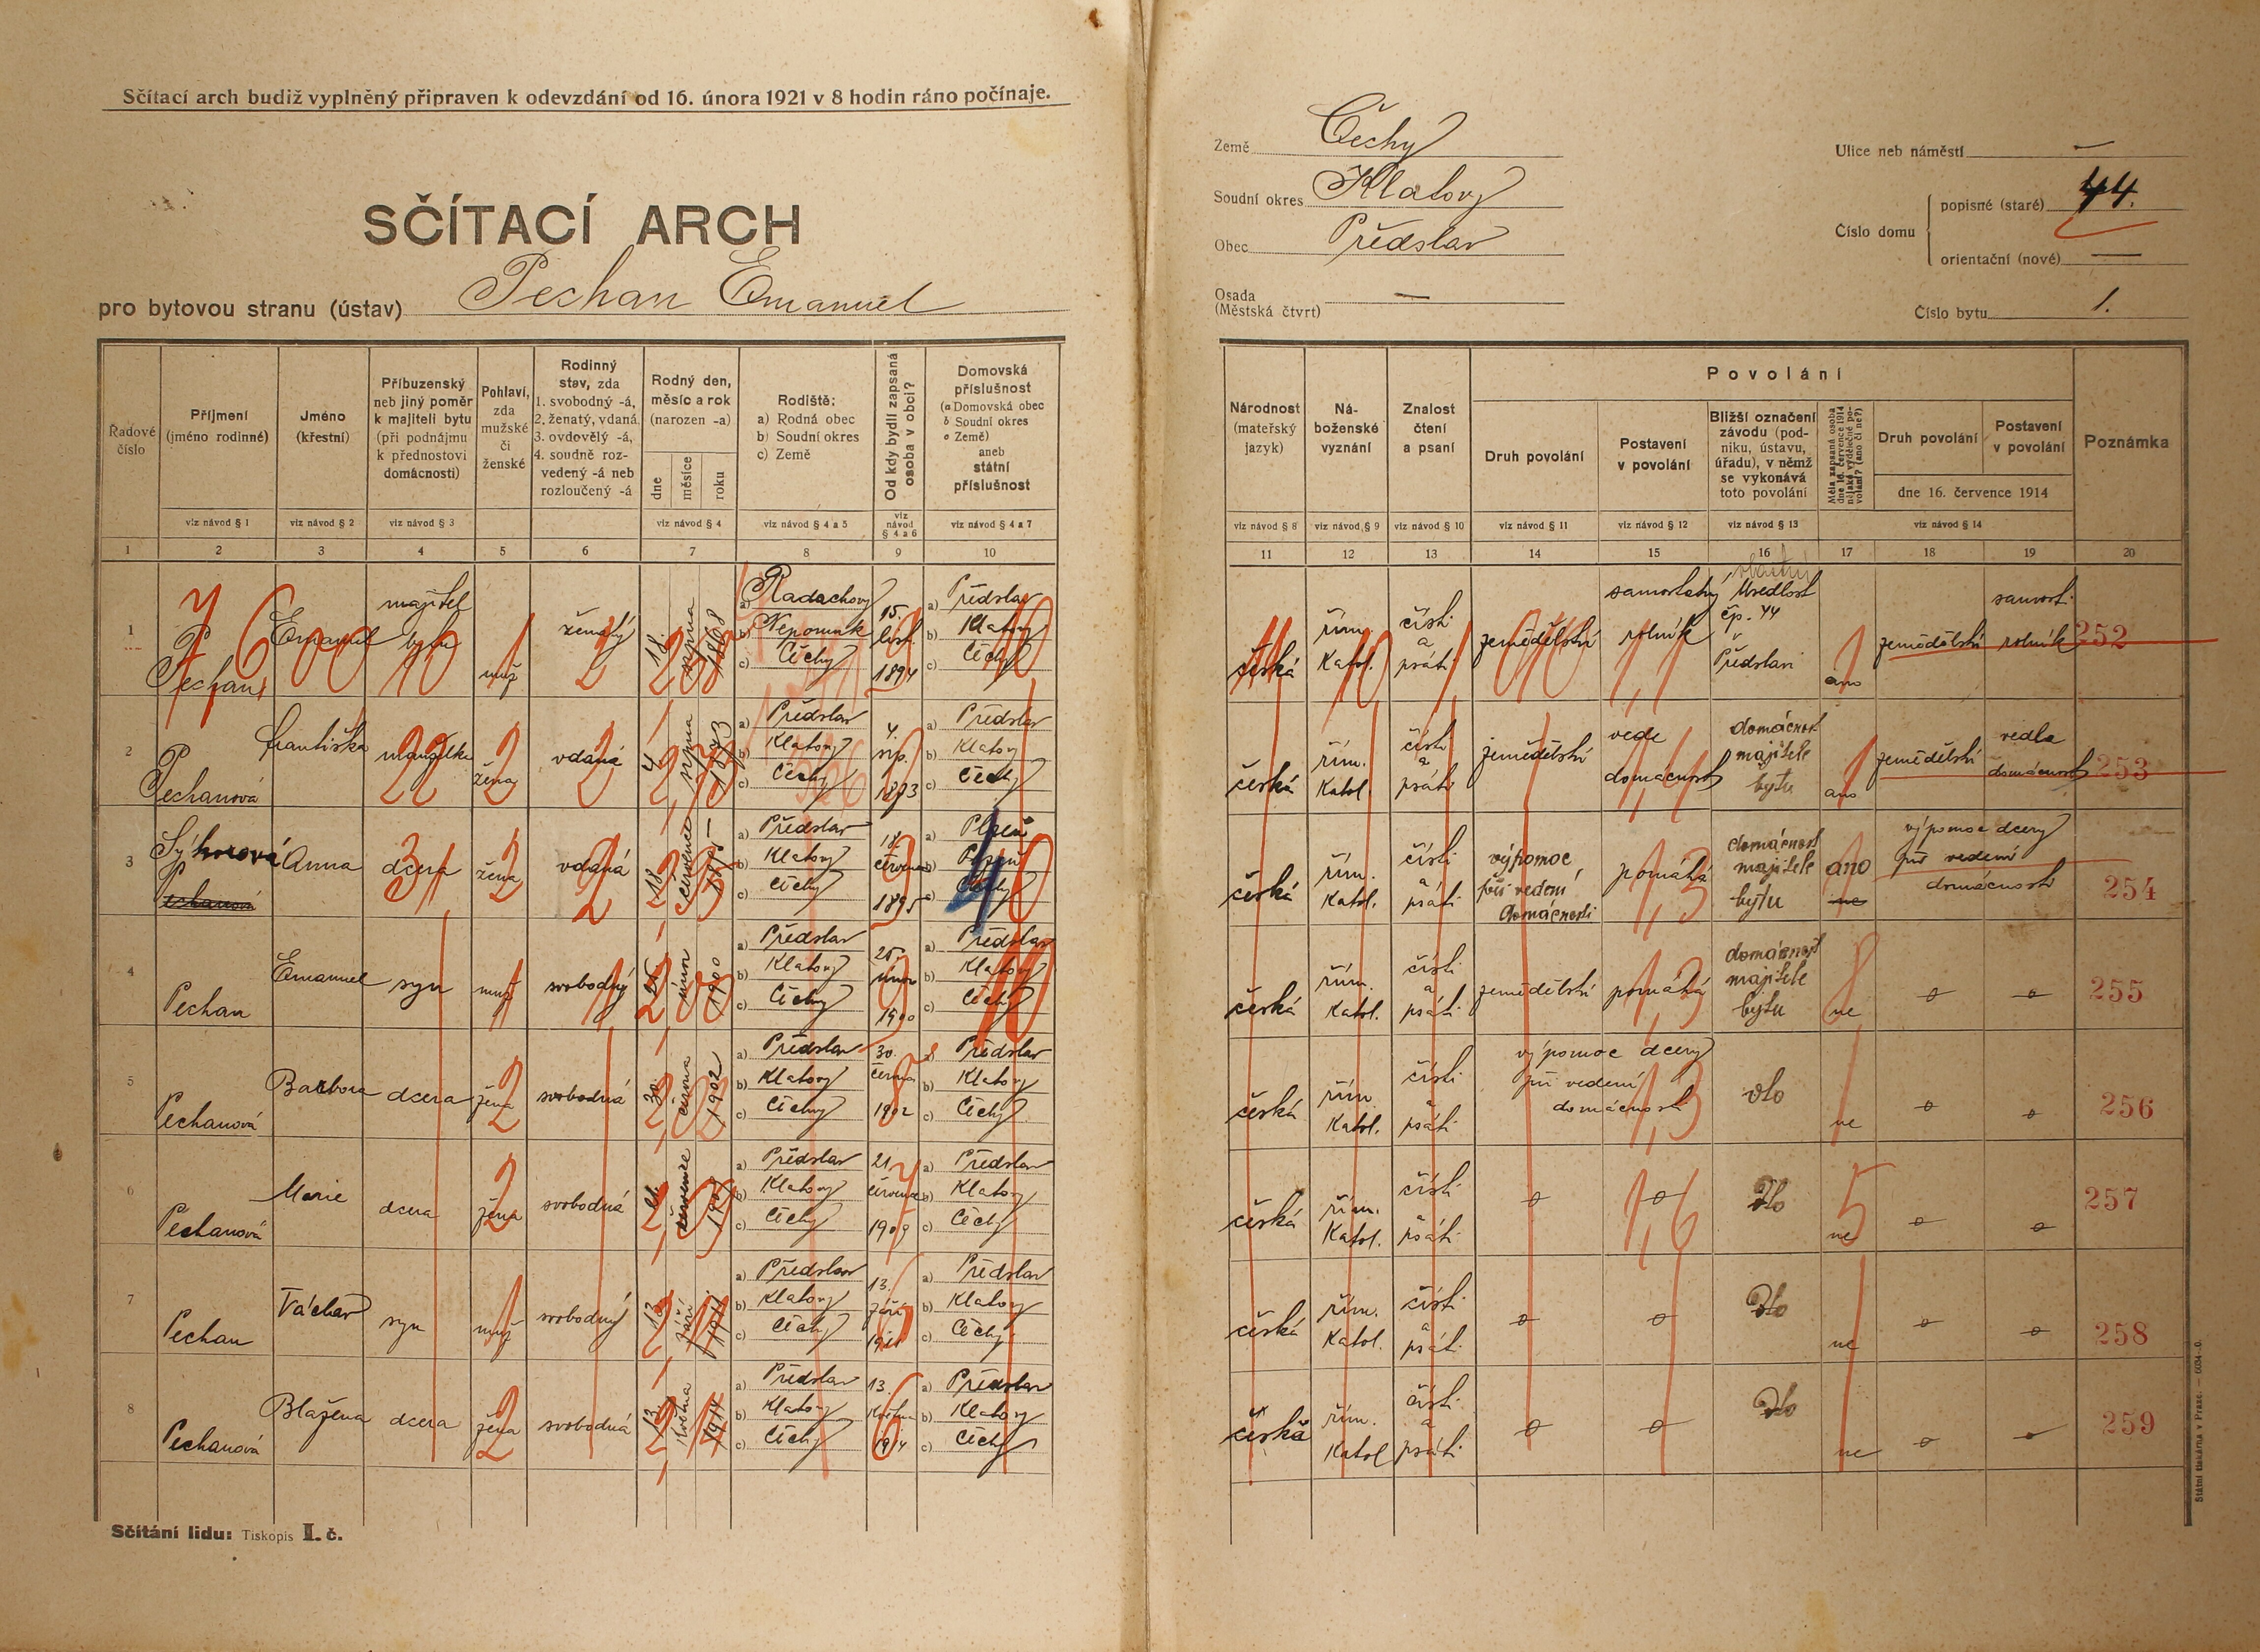 Sčítací arch budiž vyplněný připraven k odevzdání od 16. února 1921 v 8 hodin ráno počínaje.
SČÍTACÍ ARCH
pro bytovou stranu (ústav) Pechan Emanuel
Země Čechy
Soudní okres Klatovy
Obec Předslav
Osada
(Městská čtvrt) —
Ulice neb náměstí —
Číslo domu
popisné (staré) 44.
orientační (nové) —
Číslo bytu 1.
Řadové číslo
Příjmení (jméno rodinné)
Jméno (křestní)
Příbuzenský neb jiný poměr k majiteli bytu (při podnájmu k přednostovi domácnosti)
Pohlaví, zda mužské či ženské
Rodinný stav, zda 1. svobodný -á, 2. ženatý, vdaná 3. ovdovělý -á, 4. soudně rozvedený -á neb rozloučený -á
Rodný den, měsíc a rok (narozen -a)
dne měsíce roku
Rodiště: a) Rodná obec b) Soudní okres c) Země
Od kdy bydlí zapsaná osoba v obci?
Domovská příslušnost (a Domovská obec b Soudní okres c Země) aneb státní příslušnost
viz návod § 1 viz návod § 2 viz návod § 3 viz návod § 4 viz návod § 4 a 5 viz návod § 4 a 6 viz návod § 4 a 7
1 2 3 4 5 6 7 8 9 10
Národnost (mateřský jazyk)
Náboženské vyznání
Znalost čtení a psaní
Povolání
Druh povolání
Postavení v povolání
Bližší označení závodu (podniku, ústavu, úřadu), v němž se vykonává toto povolání
Měla zapsaná osoba dne 16. července 1914 nějaké výdělečné povolání? (ano či ne?)
Druh povolání
Postavení v povolání
dne 16. července 1914
Poznámka
viz návod § 8 viz návod § 9 viz návod § 10 viz návod § 11 viz návod § 12 viz návod § 13 viz návod § 14
11 12 13 14 15 16 17 18 19 20
1 Pechan Emanuel majitel bytu muž ženatý 18. srpna 1868 a) Radachovy b) Nepomuk c) Čechy 15. list. 1894 a) Předslav b) Klatovy c) Čechy
česká řím. Katol. čísti a psáti zemědělství samostatný rolník Usedlost čp. 44 v Předslavi ano zemědělství samost. rolník 252
2 Pechanová Františka manželka žena vdaná 4 srpna 1873 a) Předslav b) Klatovy c) Čechy 4. srp. 1873 a) Předslav b) Klatovy c) Čechy
česká řím. Katol. čísti a psáti zemědělství vede domácnost domácnost majitele bytu ano zemědělství vedla domácnost 253
3 Sýkorová Pechanová Anna dcera žena vdaná 18. července 1895 a) Předslav b) Klatovy c) Čechy 18. července 1895 a) Plzeň b) Plzeň c) Čechy
česká řím. Katol. čísti a psáti výpomoc při vedení domácnosti pomáhá domácnost majitele bytu ano ne výpomoc dcery při vedení domácnosti 254
4 Pechan Emanuel syn muž svobodný 25. února 1900 a) Předslav b) Klatovy c) Čechy 25. února 1900 a) Předslav b) Klatovy c) Čechy
česká řím. Katol. čísti a psáti zemědělství pomáhá domácnost majitele bytu ne 255
5 Pechanová Barbora dcera žena svobodná 30. června 1902 a) Předslav b) Klatovy c) Čechy 30. června 1902 a) Předslav b) Klatovy c) Čechy
česká řím. Katol. čísti a psáti výpomoc dcery při vedení domácnosti dto ne 256
6 Pechanová Marie dcera žena svobodná 21. července 1909 a) Předslav b) Klatovy c) Čechy 21. července 1909 a) Předslav b) Klatovy c) Čechy
česká řím. Katol. čísti a psáti dto ne 257
7 Pechan Václav syn muž svobodný 13. září 1911 a) Předslav b) Klatovy c) Čechy 13. září 1911 a) Předslav b) Klatovy c) Čechy
česká řím. Katol. čísti a psáti dto ne 258
8 Pechanová Blažena dcera žena svobodná 13. května 1914 a) Předslav b) Klatovy c) Čechy 13. května 1914 a) Předslav b) Klatovy c) Čechy
česká řím. Katol čísti a psáti dto ne 259
Sčítání lidu: Tiskopis I. č.